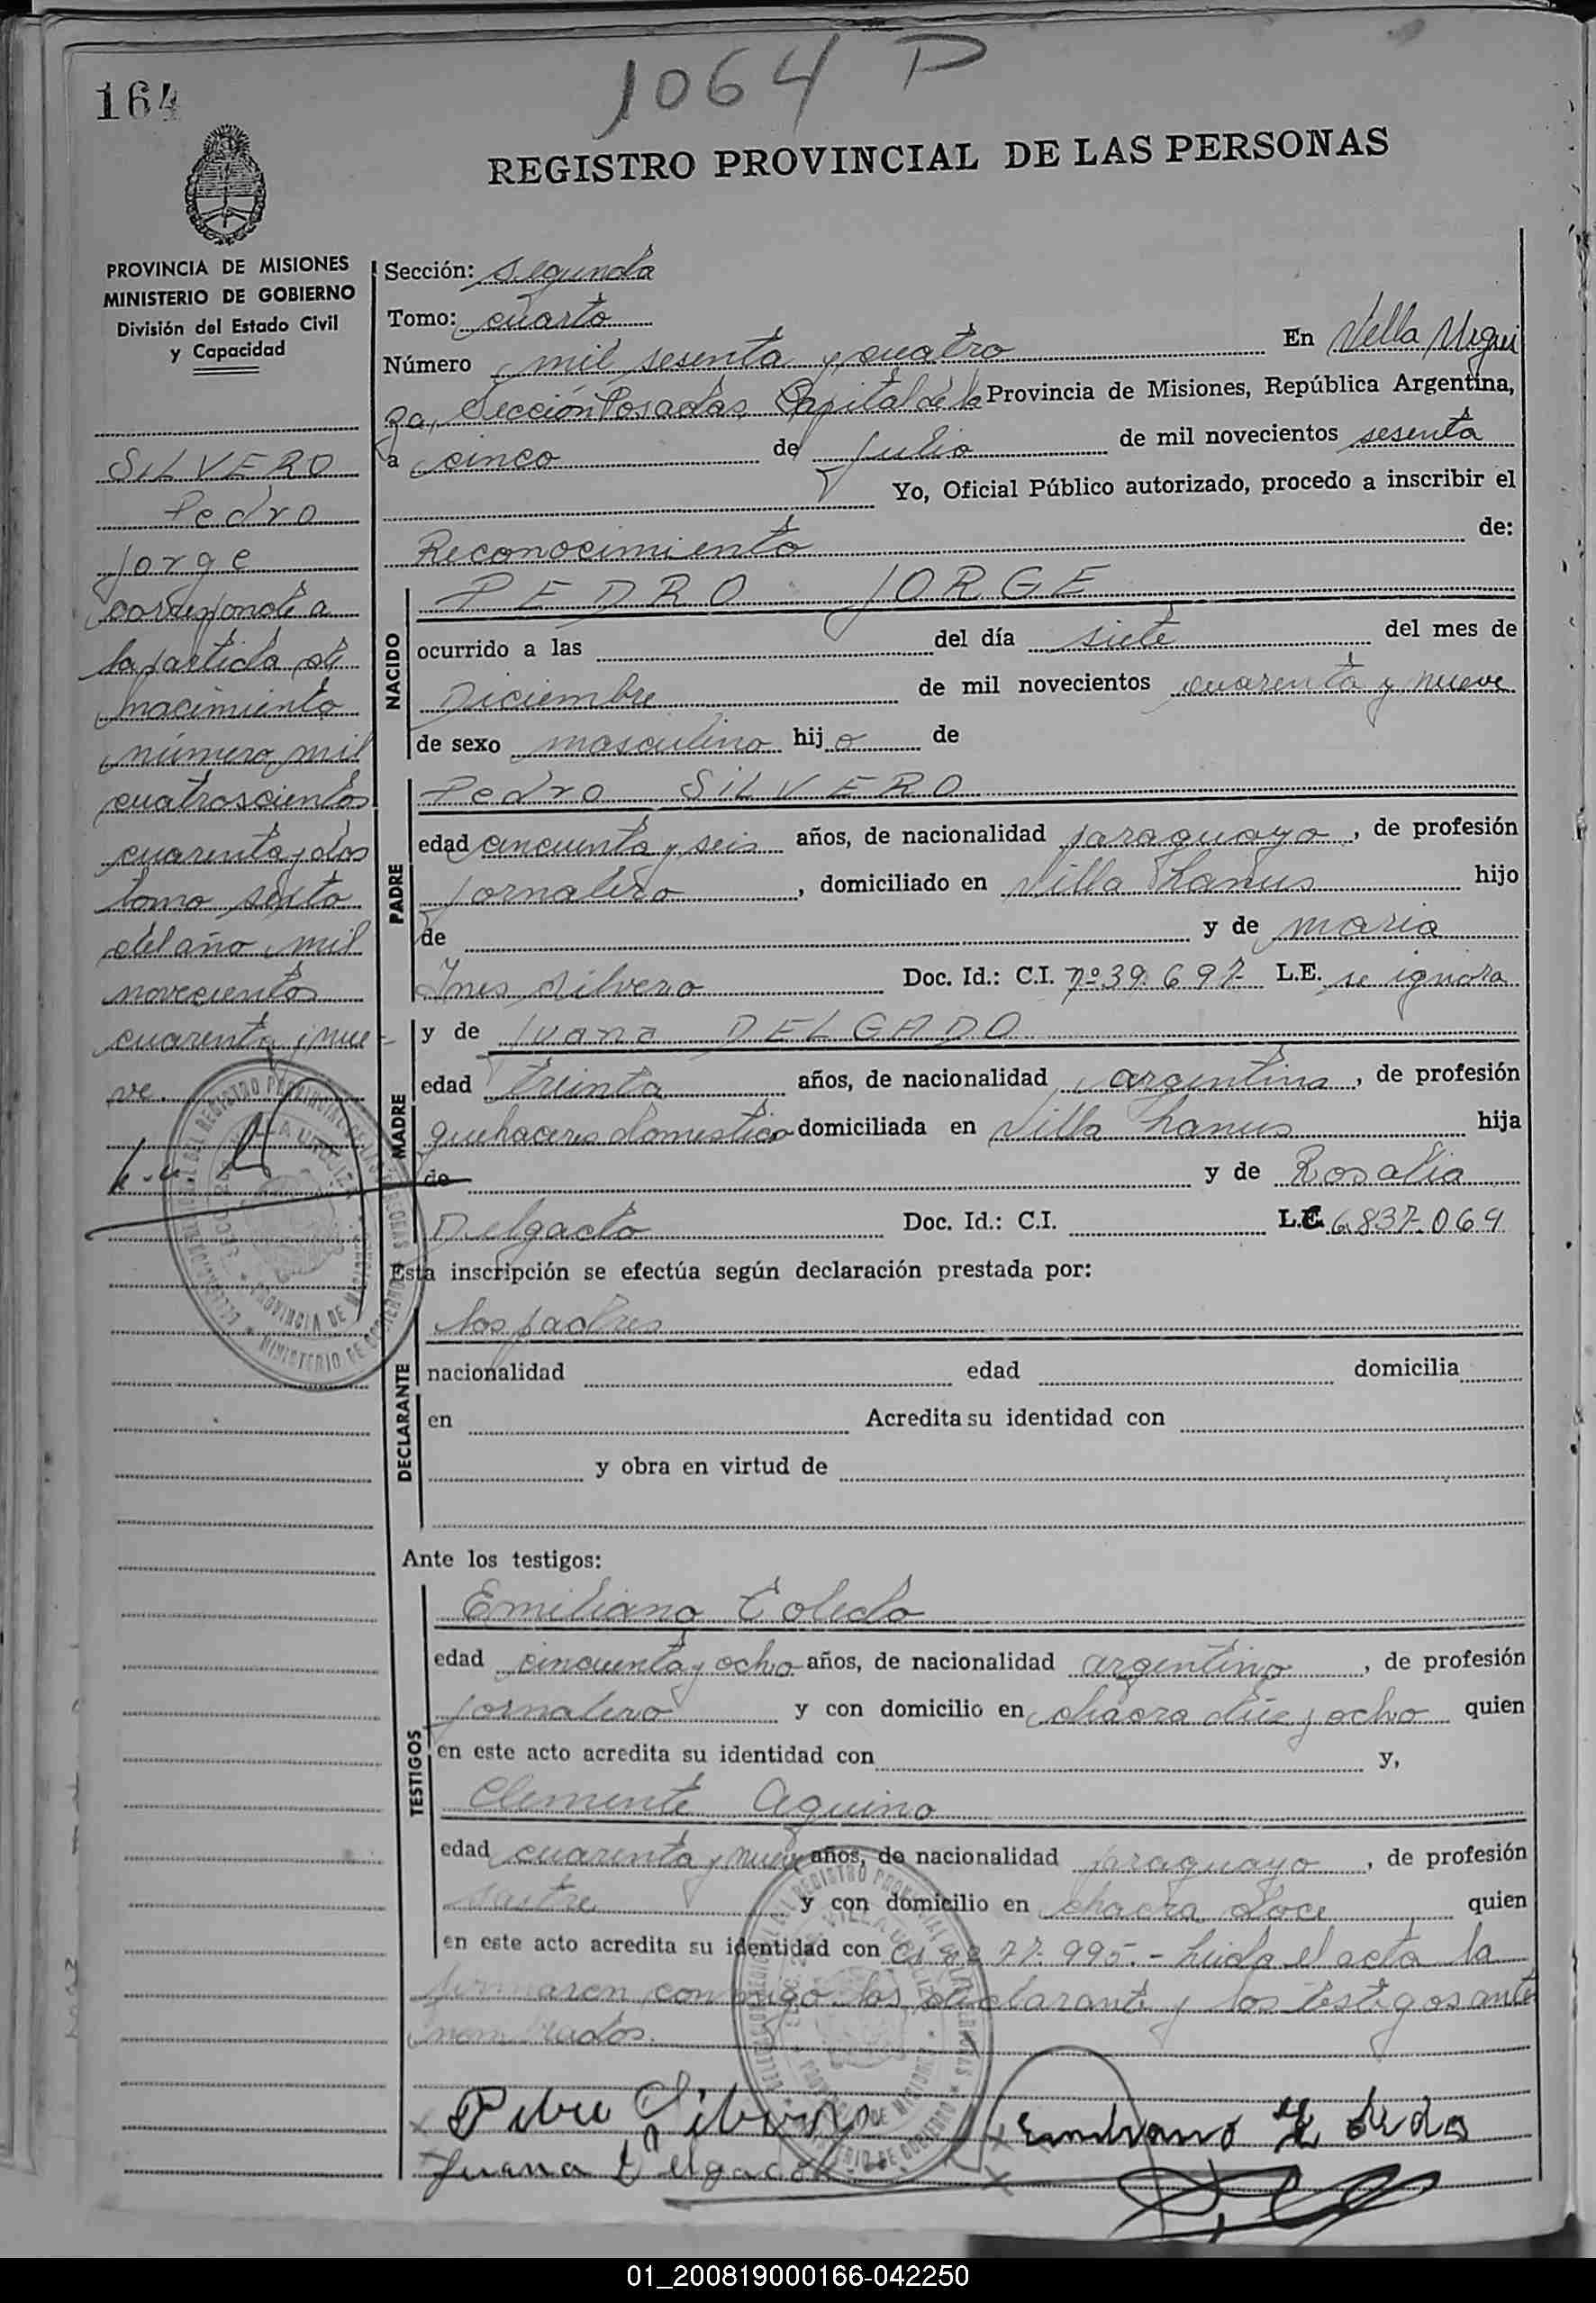 1064 P
164
REGISTRO PROVINCIAL DE LAS PERSONAS
PROVINCIA DE MISIONES
MINISTERIO DE GOBIERNO
División del Estado Civil
y Capacidad
SILVERO
Pedro
Jorge
corresponde a
la partida de
nacimiento
número mil
cuatroscientos
cuarenta y dos
tomo sexto
del año mil
novecientos
cuarenta y nue-
ve.
Sección: segunda
Tomo: cuarto
Número mil sesenta y cuatro En Villa Urqui
za, Sección Posadas, Capital de la Provincia de Misiones, República Argentina,
a cinco de julio de mil novecientos sesenta
Yo, Oficial Público autorizado, procedo a inscribir el
Reconocimiento de:
NACIDO
PEDRO JORGE
ocurrido a las del día siete del mes de
Diciembre de mil novecientos cuarenta y nueve
de sexo masculino hijo de
PADRE
Pedro SILVERO
edad cincuenta y seis años, de nacionalidad paraguayo, de profesión
jornalero, domiciliado en Villa Lanus hijo
de y de maria
Ines silvero Doc. Id.: C.I. nº 39.697 L.E. se ignora
MADRE
y de Juana DELGADO
edad treinta años, de nacionalidad argentina, de profesión
quehaceres domestico domiciliada en Villa Lanus hija
de y de Rosalia
Delgado Doc. Id.: C.I. L.C. 6.837.069
Esta inscripción se efectúa según declaración prestada por:
DECLARANTE
los padres
nacionalidad edad domicilia
en Acredita su identidad con
y obra en virtud de
Ante los testigos:
TESTIGOS
Emiliano Toledo
edad cincuenta y ocho años, de nacionalidad argentino, de profesión
jornalero y con domicilio en chacra diez y ocho quien
en este acto acredita su identidad con y,
Clemente Aquino
edad cuarenta y nueve años, de nacionalidad paraguayo, de profesión
sastre y con domicilio en chacra doce quien
en este acto acredita su identidad con CI nº 77.995.- Leida el acta la
firmaron conmigo los declarante y los testigos ante
nombrados.
Juana Delgado
01_200819000166-042250